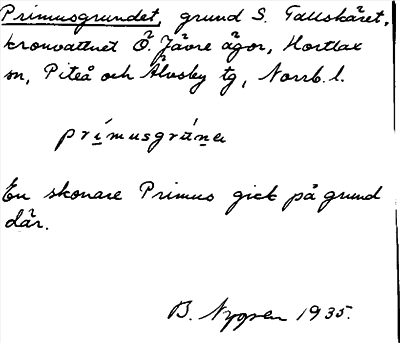 Primusgrundet, grund S. Tallskäret,
kronvattnet Ö. Jävre ägor, Hortlax
sn, Piteå och Älvsby tg, Norrb. l.
prímusgrúna
En skonare Primus gick på grund
där.
B. Nygren 1935.